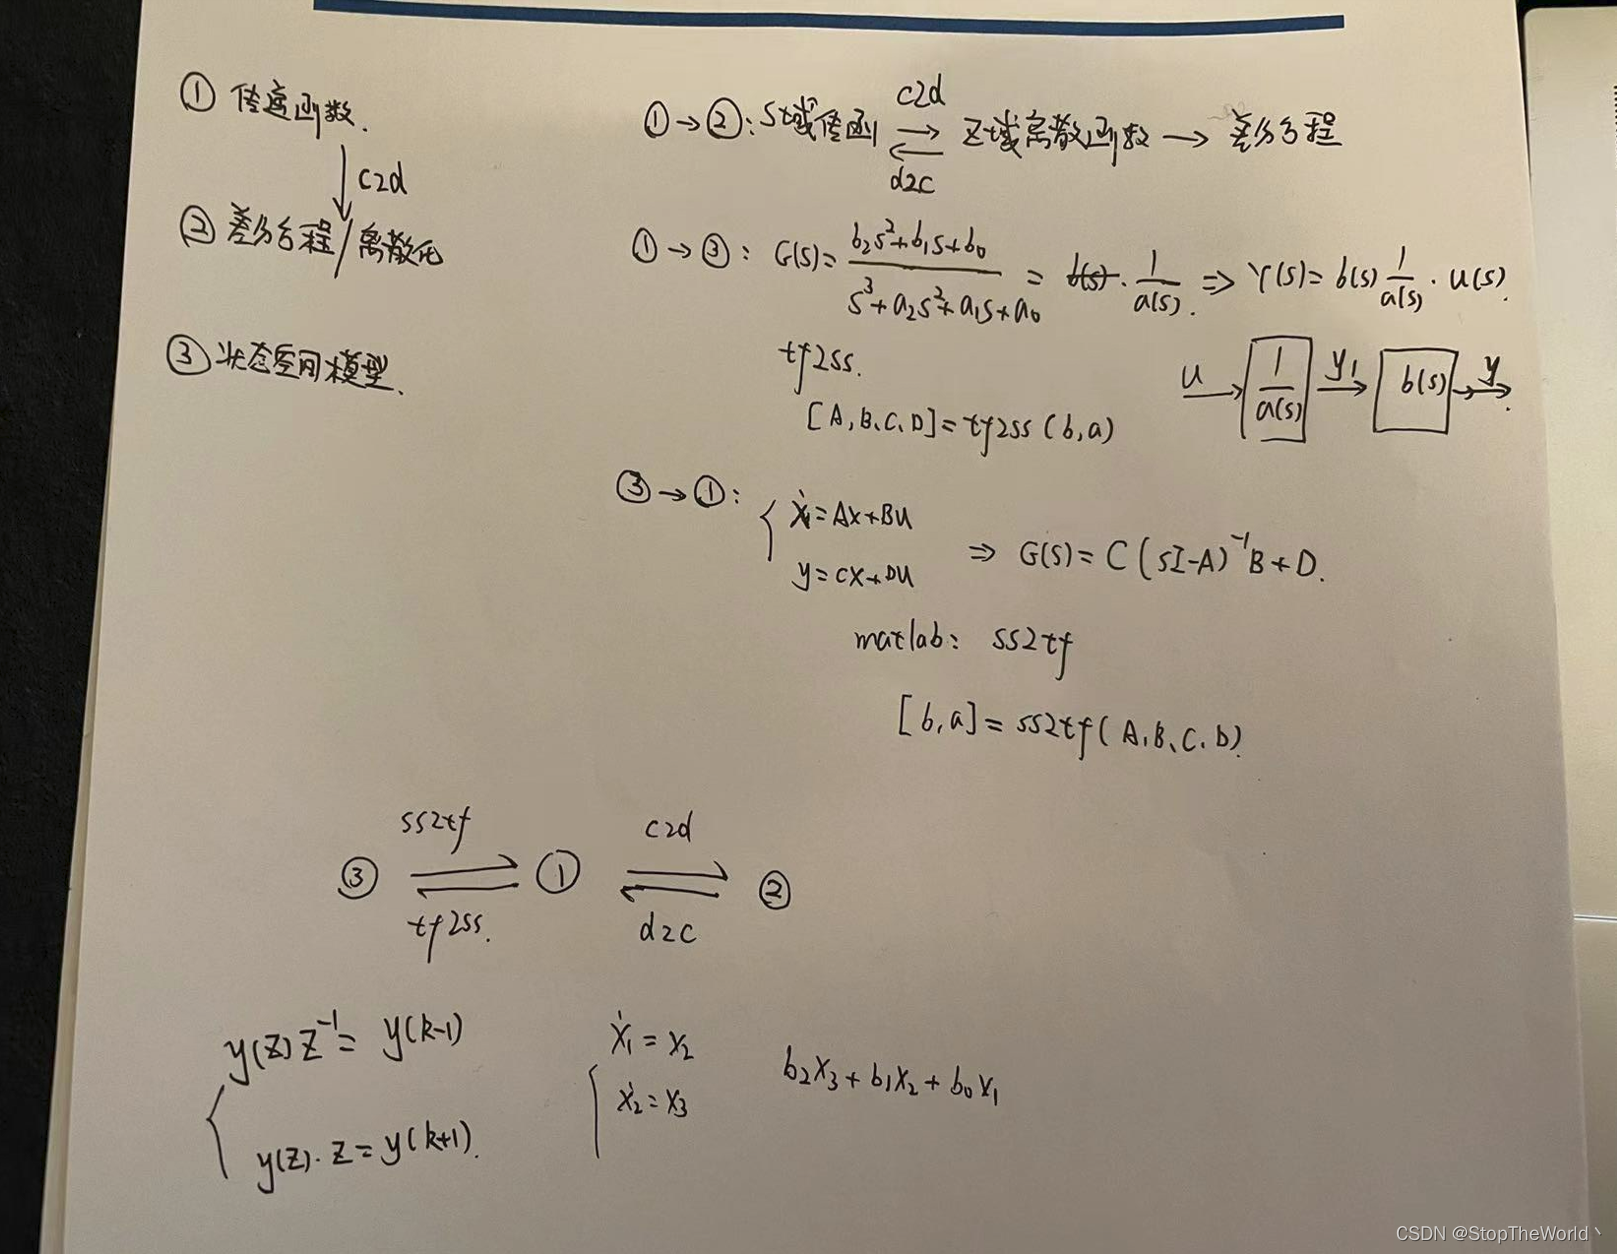 ① 传递函数.
↓ c2d
② 差分方程/离散化
③ 状态空间模型.
①→②: S域传函 ⇌ Z域离散函数 → 差分方程
c2d
d2c
①→③: G(s)= (b₂s²+b₁s+b₀)/(s³+a₂s²+a₁s+a₀) = b(s)·1/a(s). ⇒ Y(s)=b(s)1/a(s)·u(s).
tf2ss.
[A,B、C、D]=tf2ss(b,a)
u → 1/a(s) y₁ → b(s) → y.
③→①:
ẋ=Ax+Bu
y=Cx+Du
⇒ G(s)=C(sI-A)⁻¹B+D.
matlab: ss2tf
[b,a]=ss2tf(A,B、C、D)
ss2tf c2d
③ ⇌ ① ⇌ ②
tf2ss. d2c
y(z)z⁻¹=y(k-1)
y(z)·z=y(k+1).
ẋ₁=x₂
ẋ₂=x₃
b₂x₃+b₁x₂+b₀x₁
CSDN @StopTheWorld丶